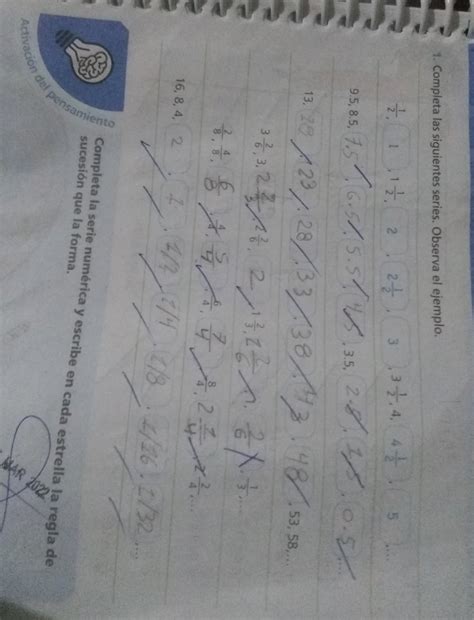 1. Completa las siguientes series. Observa el ejemplo.
1/2, 1, 1 1/2, 2, 2 1/2, 3, 3 1/2, 4, 4 1/2, 5, ...
9.5, 8.5, 7.5, 6.5, 5.5, 4.5, 3.5, 2.5, 1.5, 0.5, ...
13, 18, 23, 28, 33, 38, 43, 48, 53, 58, ...
3 2/6, 3, 2 2/3, 2 2/6, 2, 1 2/3, 1, 2/6, 1/3, ...
2/8, 4/8, 6/8, 4/4, 5/4, 6/4, 7/4, 8/4, 2 2/4, ...
16, 8, 4, 2, 1, 1/2, 1/4, 1/8, 1/16, 1/32, ...
Activación del pensamiento
Completa la serie numérica y escribe en cada estrella la regla de
sucesión que la forma.
MAR 2022